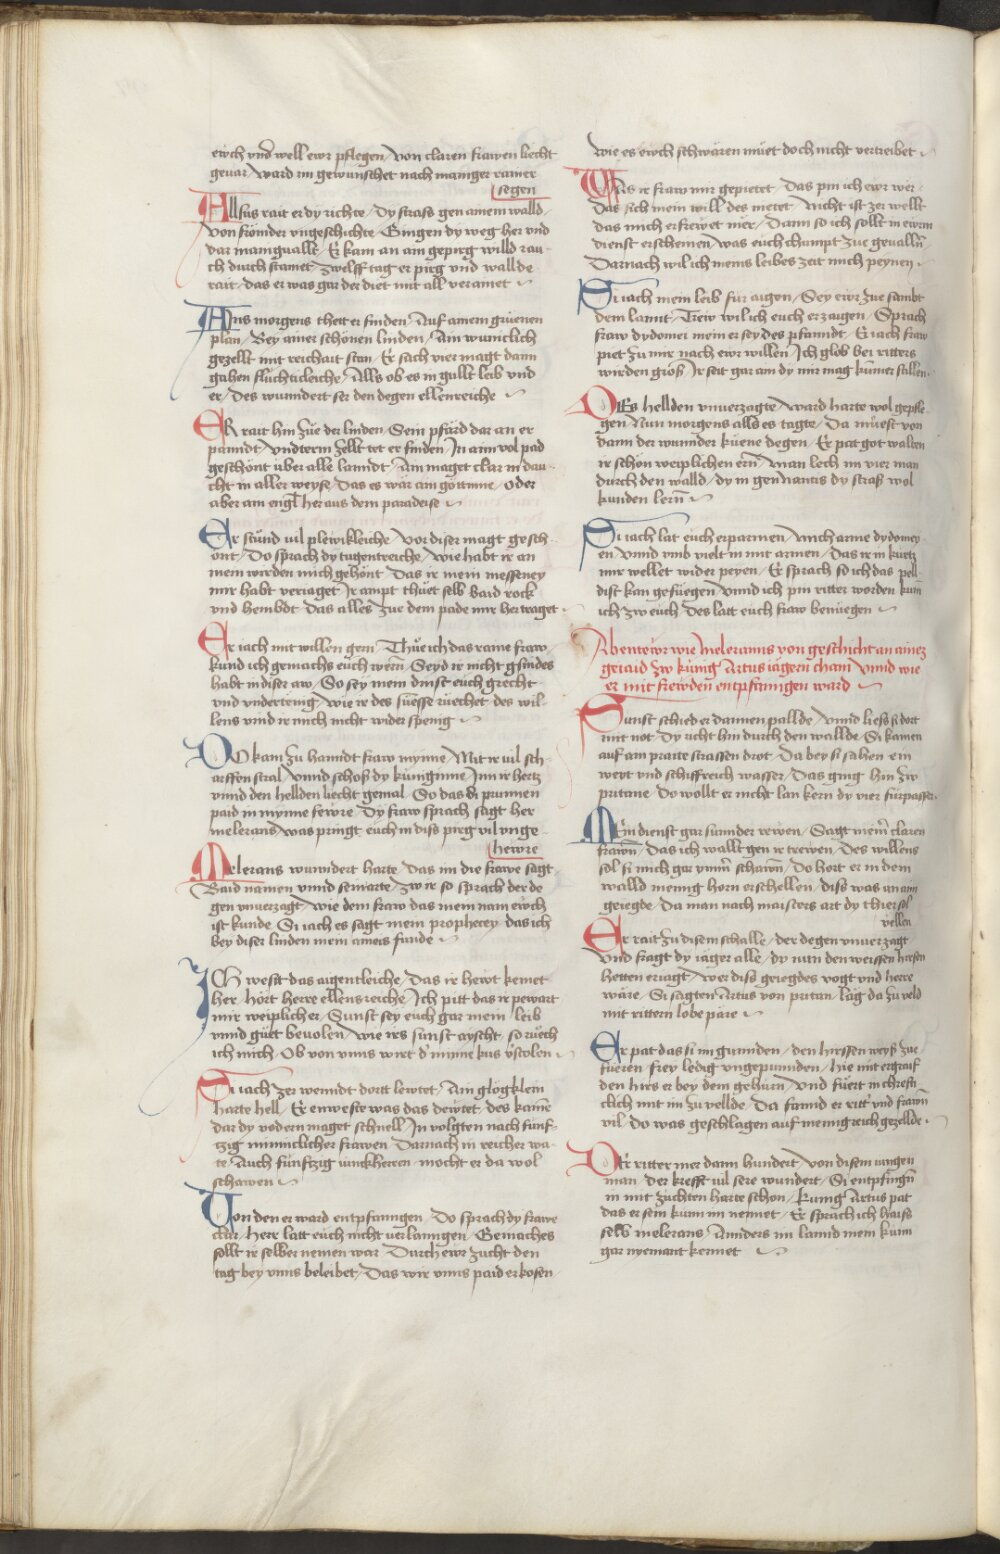 ewch vnd well ewr pflegen / von claren frawen liecht
geuar / ward im gewunschet nach maniger rainer
segen
Allsus rait er dy richte / dy strass gen ainem walld /
von frömder vngeschichte / Giengen dy weg her vnd
dar manigualt / Er kam an ain gepirg willd rau
ch durch stamet / zwelff tag er pirg vnd wallde
rait / das er was gar der diet mit all veramet
Ains morgens thett er finden / Auf ainem grüenen
plan / Bey ainer schönen linden / Ain wuniclich
gezellt mit reichait stan / Er sach vier magt dann
gahen fluchticleiche / Alls ob es in gullt leib vnd
er / Des wundert ser den degen ellenreiche
Er rait hin zue der linden / Sein pfärd dar an er
panndt / vndterm zellt tet er finden / In ainr vol pad
geschönt über alle lanndt / Ain maget clar in dau
cht in aller weyse / Das es wär ain göttinne / oder
aber ain engl her aus dem paradeise
Er stuend vil plewikleiche / vor diser magt gesch
ont / Do sprach dy tugentreiche / wie habt ir an
mein wirden mich gehönt / Das ir mein messeney
mir habt veriaget / Ir ampt thuet selb Baid rock
vnd hembdt / Das alles zue dem pade mir her traget
Er iach mit willen gern / Thue ich das raine fraw /
kund ich gemachs euch wern / Seyd ir nicht gsindes
habt in diser aw / So sey mein dinst euch grecht
vnd vnderteinig / wie ir des süesse ruechet / des wil
lens vnnd ir mich nicht wider spenig
Do kam zu hanndt fraw mynne / Mit ir vil sch
arffen stral / vnnd schoss dy künginne / Inn ir hertz
vnnd den hellden liecht gemal / So das si prunnen
paid in mynne fewre / Dy fraw sprach sagt her
melerans / was pringt euch in diss pirg vil vnge
hewre
Melerans wunndert harte / Das im die frawe sagt /
Baid namen vnnd sein arte / zw ir so sprach der de
gen vnuerzagt / wie dem fraw das mein nam ewch
ist kunde / Si iach es sagt mein prophecey / das ich
bey diser linden mein ameis funde
Ich wesst das aigentleiche / Das ir hewt kemet
her / hört herre ellensreiche / Ich pitt das ir pewart
mir weiplich er / Sunst sey euch gar mein leib
vnnd güet beuolen / wie irs sunst ayscht / so ruech
ich mich / Ob von vnns wirt d' minne kus v'stolen
Si iach zer wenndt dortt lewtet / Ain glögklein
harte hell / Er enweste was das dewtet / des kame
dar dy vodern maget schnell / In volgten nach funf
tzig minniclicher frawen / Darnach in reicher wa
te / Auch funftzig iunckherren / mocht er da wol
schawen
Von den er ward entpfanngen / Do sprach dy frawe
clar / herr latt euch nicht verlanngen / Gemaches
sollt ir selber nemen war / Durch ewr zucht den
tag bey vnns beleibet / Das wir vnns paid erkosen /
wie es ewch schwären müet doch nicht vertreibet
Was ir fraw mir gepietet / Das pin ich ewr wer /
Das sich mein will des nietet / Nicht ist zer wellt
das mich erfrewet mer / Dann so ich sollt in ewrm
dienst erscheinen / was euch chumpt zue geualln
Darnach wil ich meins leibes zeit mich peynen
Si iach mein leib für aigen / Sey ewr zue sambt
dem lannt / Trew wil ich euch erzaigen / Sprach
fraw dydomei mein er sey des pfanndt / Er iach fraw
piet zu mir nach ewr willen / Ich glob bei ritters
wirden gröss / Ir seit gar ain dy mir mag kumer stillen
Des hellden vnuerzagte / ward harte wol gepfle
gen / Nun morgens alls es tagte / Da muesst von
dann der wunnder küene degen / Er pat got walten
ir schön weiplichen ern / man lech im vier man
durch den walld / dy in gen Nantis dy strass wol
kunden lern
Si iach lat euch erparmen / Mich arme dydomey
en / vnnd vmb vielt in mit armen / Das ir in kurtz
mir wellet wider peyen / Er sprach so ich das pell
dist kan gefuegen / vnnd ich pin ritter worden kum
ich zw euch / Des latt euch fraw benüegen
Abentewr wie Melerannis von geschicht an ainez
geraid zw künig Artus iägern cham / vnnd wie
er mit frewden entpfanngen ward
Sunst schied er dannen pallde / vnnd liess si dort
mit not / Dy richt hin durch den wallde / Si kamen
auf ain praite strassen drot / Da bey si sahen ein
weyt vnd schiffreich wasser / Das ging hin zw
pritane / Do wollt er nicht lan kern dy vier fürpasser
Mein dienst gar sunnder rewen / Sagt meinr claren
frawn / Das ich wallt gen ir trewen / Des willens
sol si mich gar ymm schawn / Do hort er in dem
walld menig horn erschellen / diss was an ain
geriegde / Da man nach maisters art dy thier sol
vellen
Er rait zu disem schalle / der degen vnuerzagt /
Vnd fragt dy iäger alle / dy nun den weissen hirssen
hetten eriagt / wer diss geriegdes vogt vnd herre
wäre / Si sagten Artus von pritan / läg da zu veld
mit rittern lobepäre
Er pat das si im gunnden / den hirssen weyss zue
füeren / frey ledig vngepunnden / hie mit ergraif
den hirs er bey dem gehürn / Vnd fuert in chrefti
clich mit im zu vellde / Da fannd er ritt' vnd frawn
vil / Do was geschlagen auf menig reich gezellde
Der ritter mer dann hundert / von disem iungen
man / der kresst vil sere wundert / Si entpfingn
in mit zuchten harte schon / kunig Artus pat
das er sein kunn im nennet / Er sprach ich haiss
selb melerans / Annders im lannd mein kunn
gar nyemant kennet